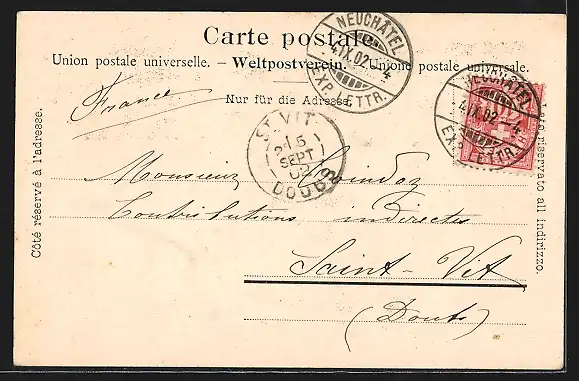 Carte postale.
Union postale universelle. – Weltpostverein. – Unione postale universale.
Nur für die Adresse.
Côté réservé à l'adresse.
Lato riservato all indirizzo.
NEUCHATEL
4.IX.02 – 4
EXP. LETTR.
NEUCHATEL
4.IX.02 – 4
EXP. LETTR.
ST VIT
5
SEPT
02
DOUBS
France
Monsieur
Contributions indirectes
Saint-Vit
(Doubs)